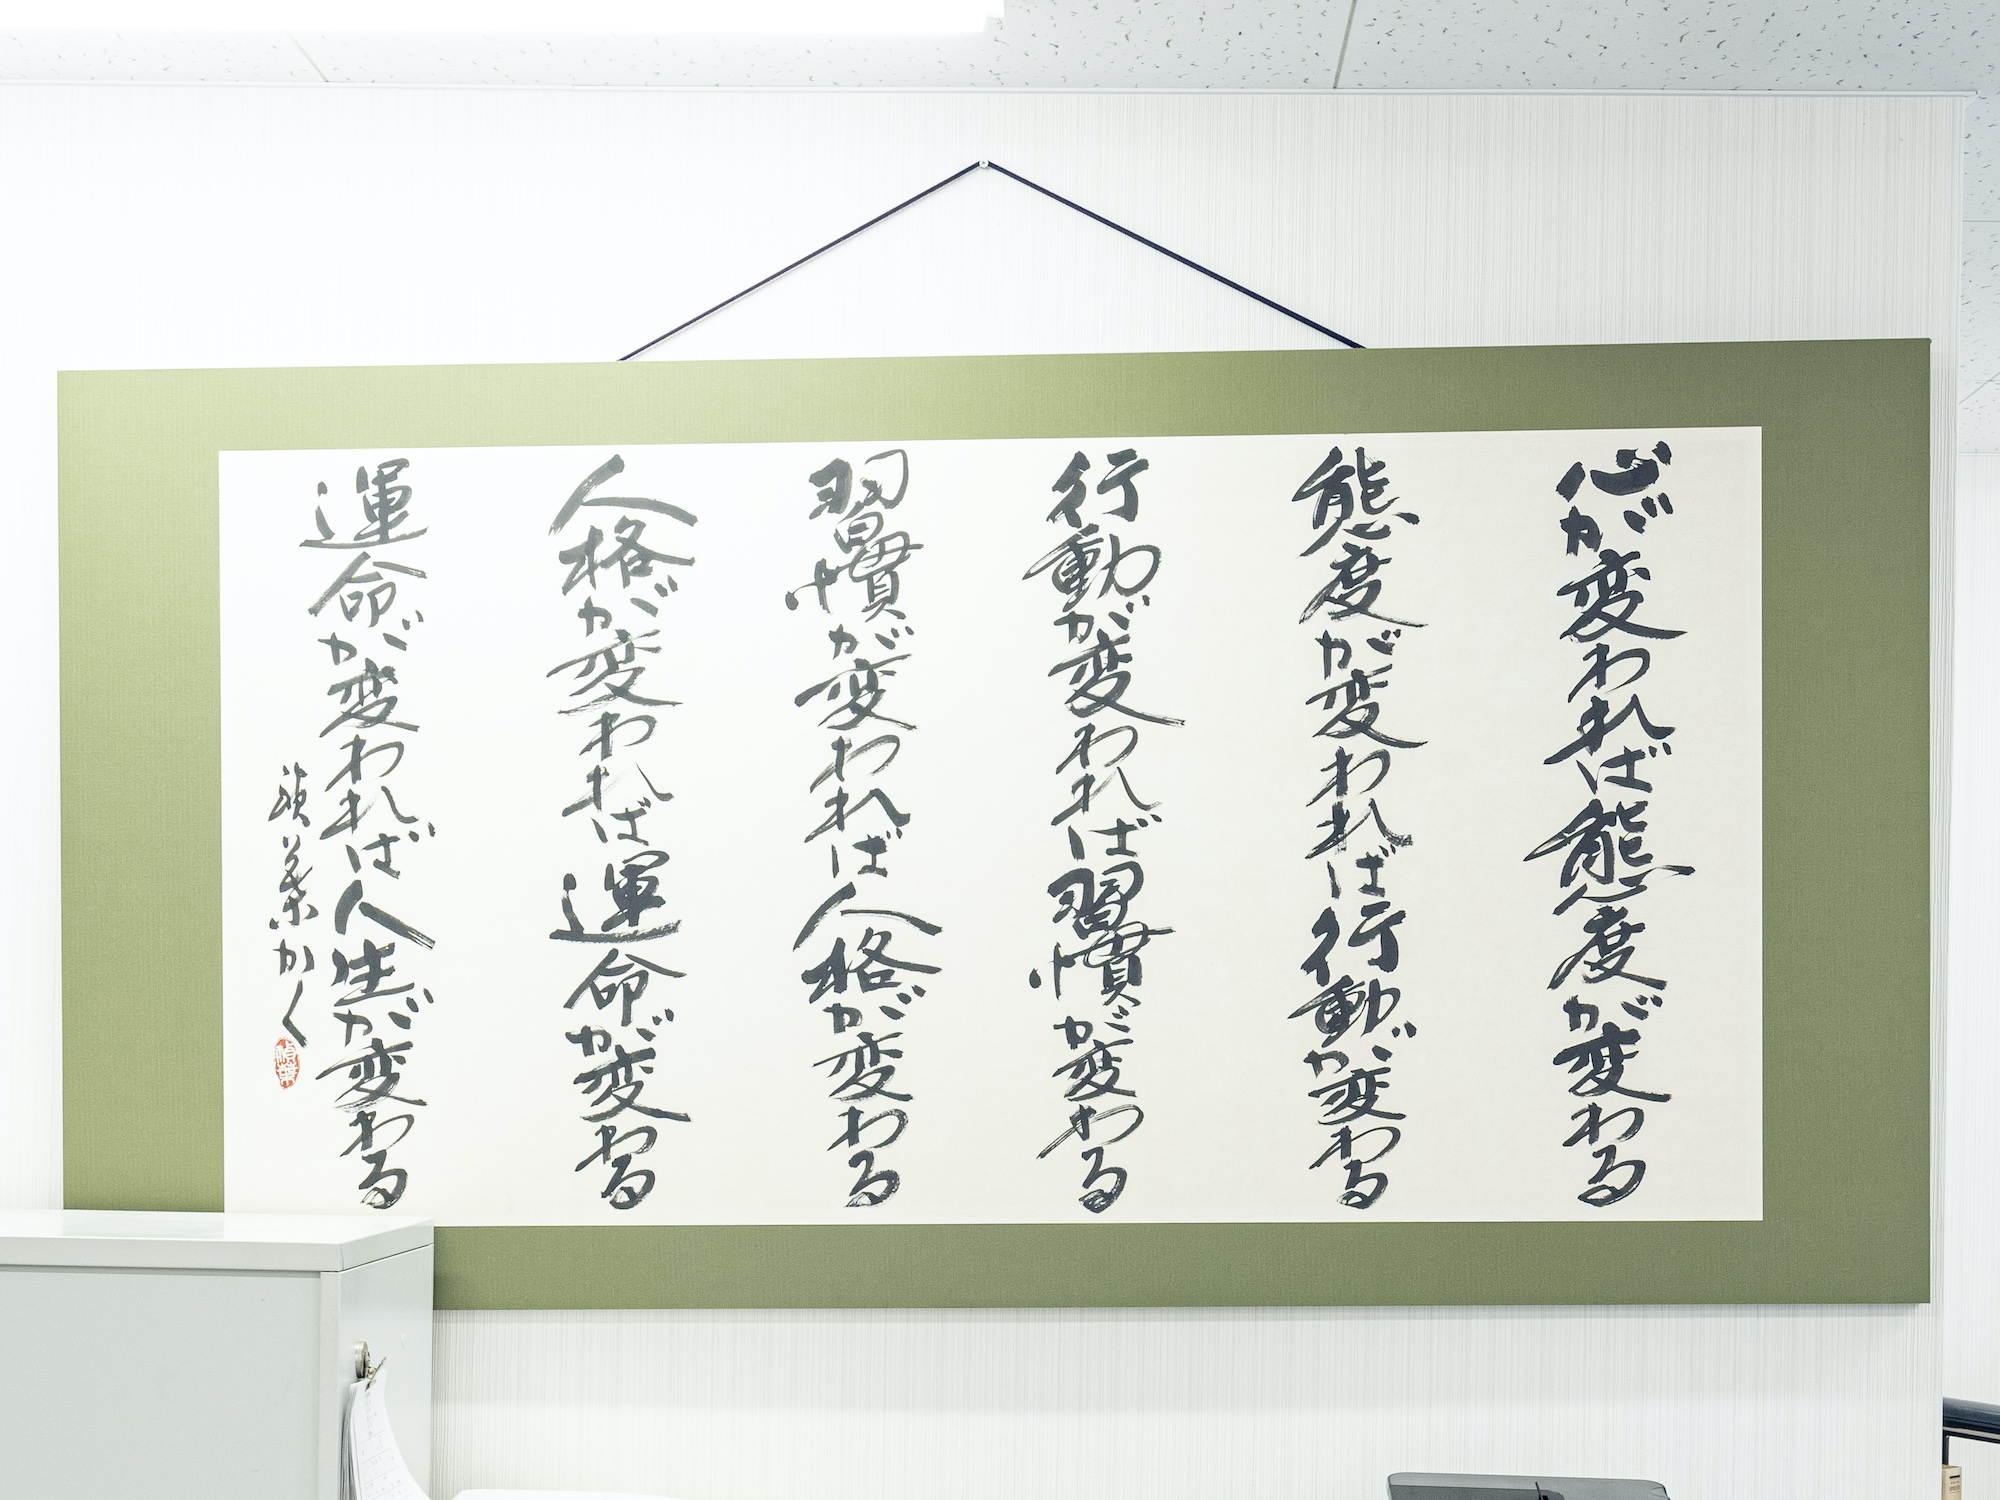 心が変われば態度が変わる
態度が変われば行動が変わる
行動が変われば習慣が変わる
習慣が変われば人格が変わる
人格が変われば運命が変わる
運命が変われば人生が変わる
葉かく